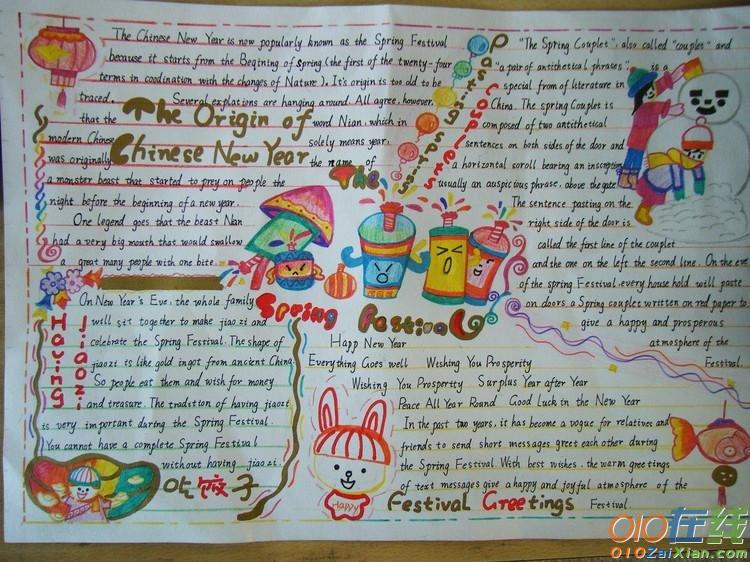 The Chinese New Year is now popularly known as the Spring Festival
because it starts from the Begining of spring (the first of the twenty-four
terms in coodination with the changes of Nature). It's origin is too old to be
traced. Several explations are hanging around. All agree, however,
that the word Nian, which in
modern Chinese solely means year,
was originally the name of
a monster beast that started to prey on people the
night before the beginning of a new year.
One legend goes that the beast Nian
had a very big mouth that would swallow
a great many people with one bite.
The Origin of
Chinese New Year
Pasting Spring
Couplets
"The Spring Couplet", also called "couplet" and
"a pair of antithetical phrases", is a
special from of literature in
China. The spring Couplet is
composed of two antithetical
sentences on both sides of the door and
a horizontal scroll bearing an inscription,
usually an auspicious phrase, above the gate.
The sentence pasting on the
right side of the door is
called the first line of the couplet
and the one on the left the second line. On the eve
of the spring Festival, every house hold will paste
on doors a Spring couplet written on red paper to
give a happy and prosperous
atmosphere of the
Festival.
The
Spring Festival
Having
Jiaozi
On New Year's Eve, the whole family
will sit together to make jiaozi and
celebrate the Spring Festival. The shape of
jiaozi is like gold ingot from ancient China
So people eat them and wish for money
and treasure. The tradition of having jiaozi
is very important during the Spring Festival.
You cannot have a complete Spring Festival
without having jiaozi.
吃饺子
Happ New Year
Everything Goes well Wishing You Prosperity
Wishing You Prosperity Surplus Year after Year
Peace All Year Round Good Luck in the New Year
In the past two years, it has become a vogue for relatives and
friends to send short messages greet each other during
the Spring Festival. With best wishes, the warm greetings
of text messages give a happy and joyful atmosphere of the
Festival.
Happy
Festival Greetings
010在线
010ZaiXian.com